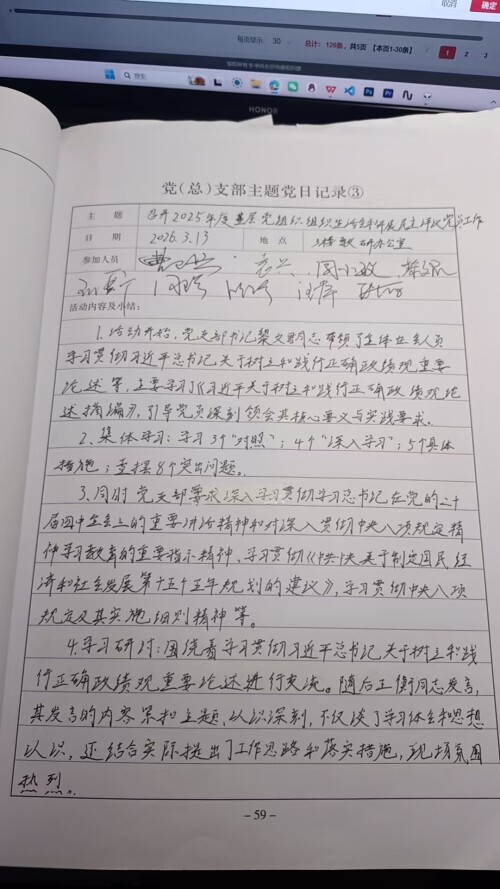 取消
确定
每页显示 30 总计: 129条, 共5页 【本页1-30条】 1 2 3
搜索
HONOR
党(总)支部主题党日记录③
主 题 召开2025年度基层党组织组织生活会和开展民主评议党员工作
日 期 2026.3.13 地 点 教研办公室
参加人员
活动内容及小结:
1. 活动开始, 党支部书记 同志带领了全体与会人员
学习贯彻习近平总书记关于树立和践行正确政绩观重要
论述等, 主要学习《习近平关于树立和践行正确政绩观论
述摘编》, 引导党员深刻领会其核心要义与实践要求。
2、集体学习: 学习3个"对照"; 4个"深入学习"; 5个具体
措施; 查摆8个突出问题。
3. 同时党支部要求深入学习贯彻学习总书记在党的二十
届四中全会上的重要讲话精神和对深入贯彻中央八项规定精
神学习教育的重要指示精神、学习贯彻《中共中央关于制定国民经
济和社会发展第十五个五年规划的建议》, 学习贯彻中央八项
规定及其实施细则精神等。
4. 学习研讨: 围绕着学习贯彻习近平总书记关于树立和践
行正确政绩观重要论述进行交流。随后王衡同志发言,
其发言的内容紧扣主题, 认识深刻, 不仅谈了学习体会和思想
认识, 还结合实际提出了工作思路和落实措施, 现场氛围
热烈。
- 59 -